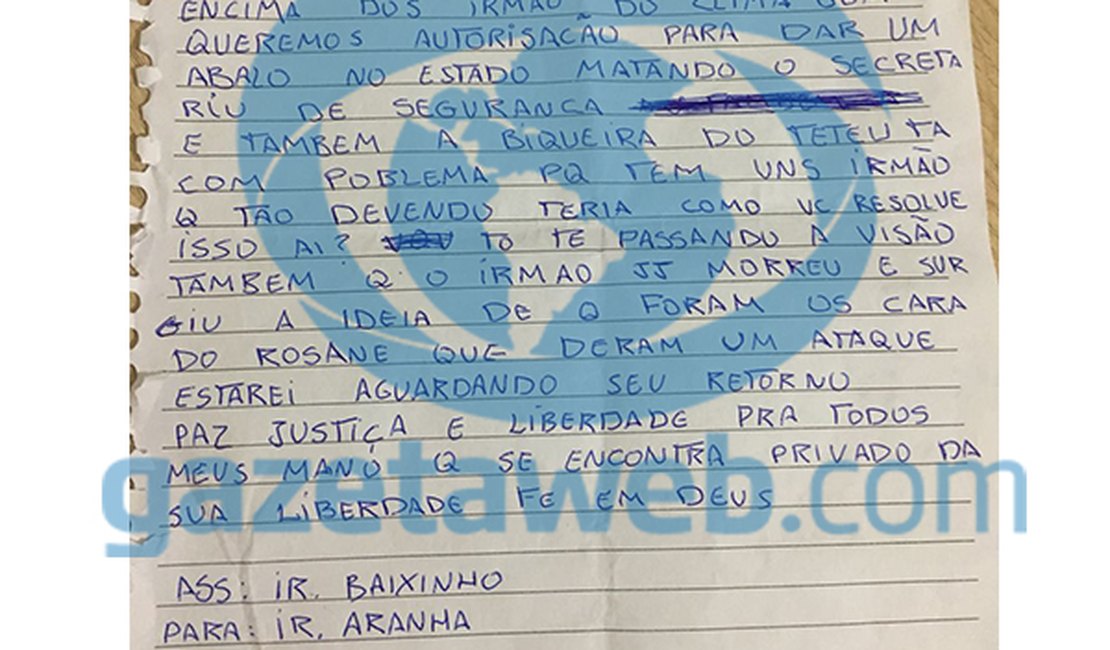 ENCIMA DOS IRMÃO DO
QUEREMOS AUTORISACÃO PARA DAR UM
ABALO NO ESTADO MATANDO O SECRETA
RIU DE SEGURANCA
E TAMBEM A BIQUEIRA DO TETEU TA
COM POBLEMA PQ TEM UNS IRMÃO
Q TÃO DEVENDO TERIA COMO VC RESOLVE
ISSO AI? TO TE PASSANDO A VISÃO
TAMBEM Q O IRMAO JJ MORREU E SUR
GIU A IDEIA DE Q FORAM OS CARA
DO ROSANE QUE DERAM UM ATAQUE
ESTAREI AGUARDANDO SEU RETORNO
PAZ JUSTIÇA E LIBERDADE PRA TODOS
MEUS MANO Q SE ENCONTRA PRIVADO DA
SUA LIBERDADE FE EM DEUS
gazetaweb.com
ASS: IR. BAIXINHO
PARA: IR. ARANHA